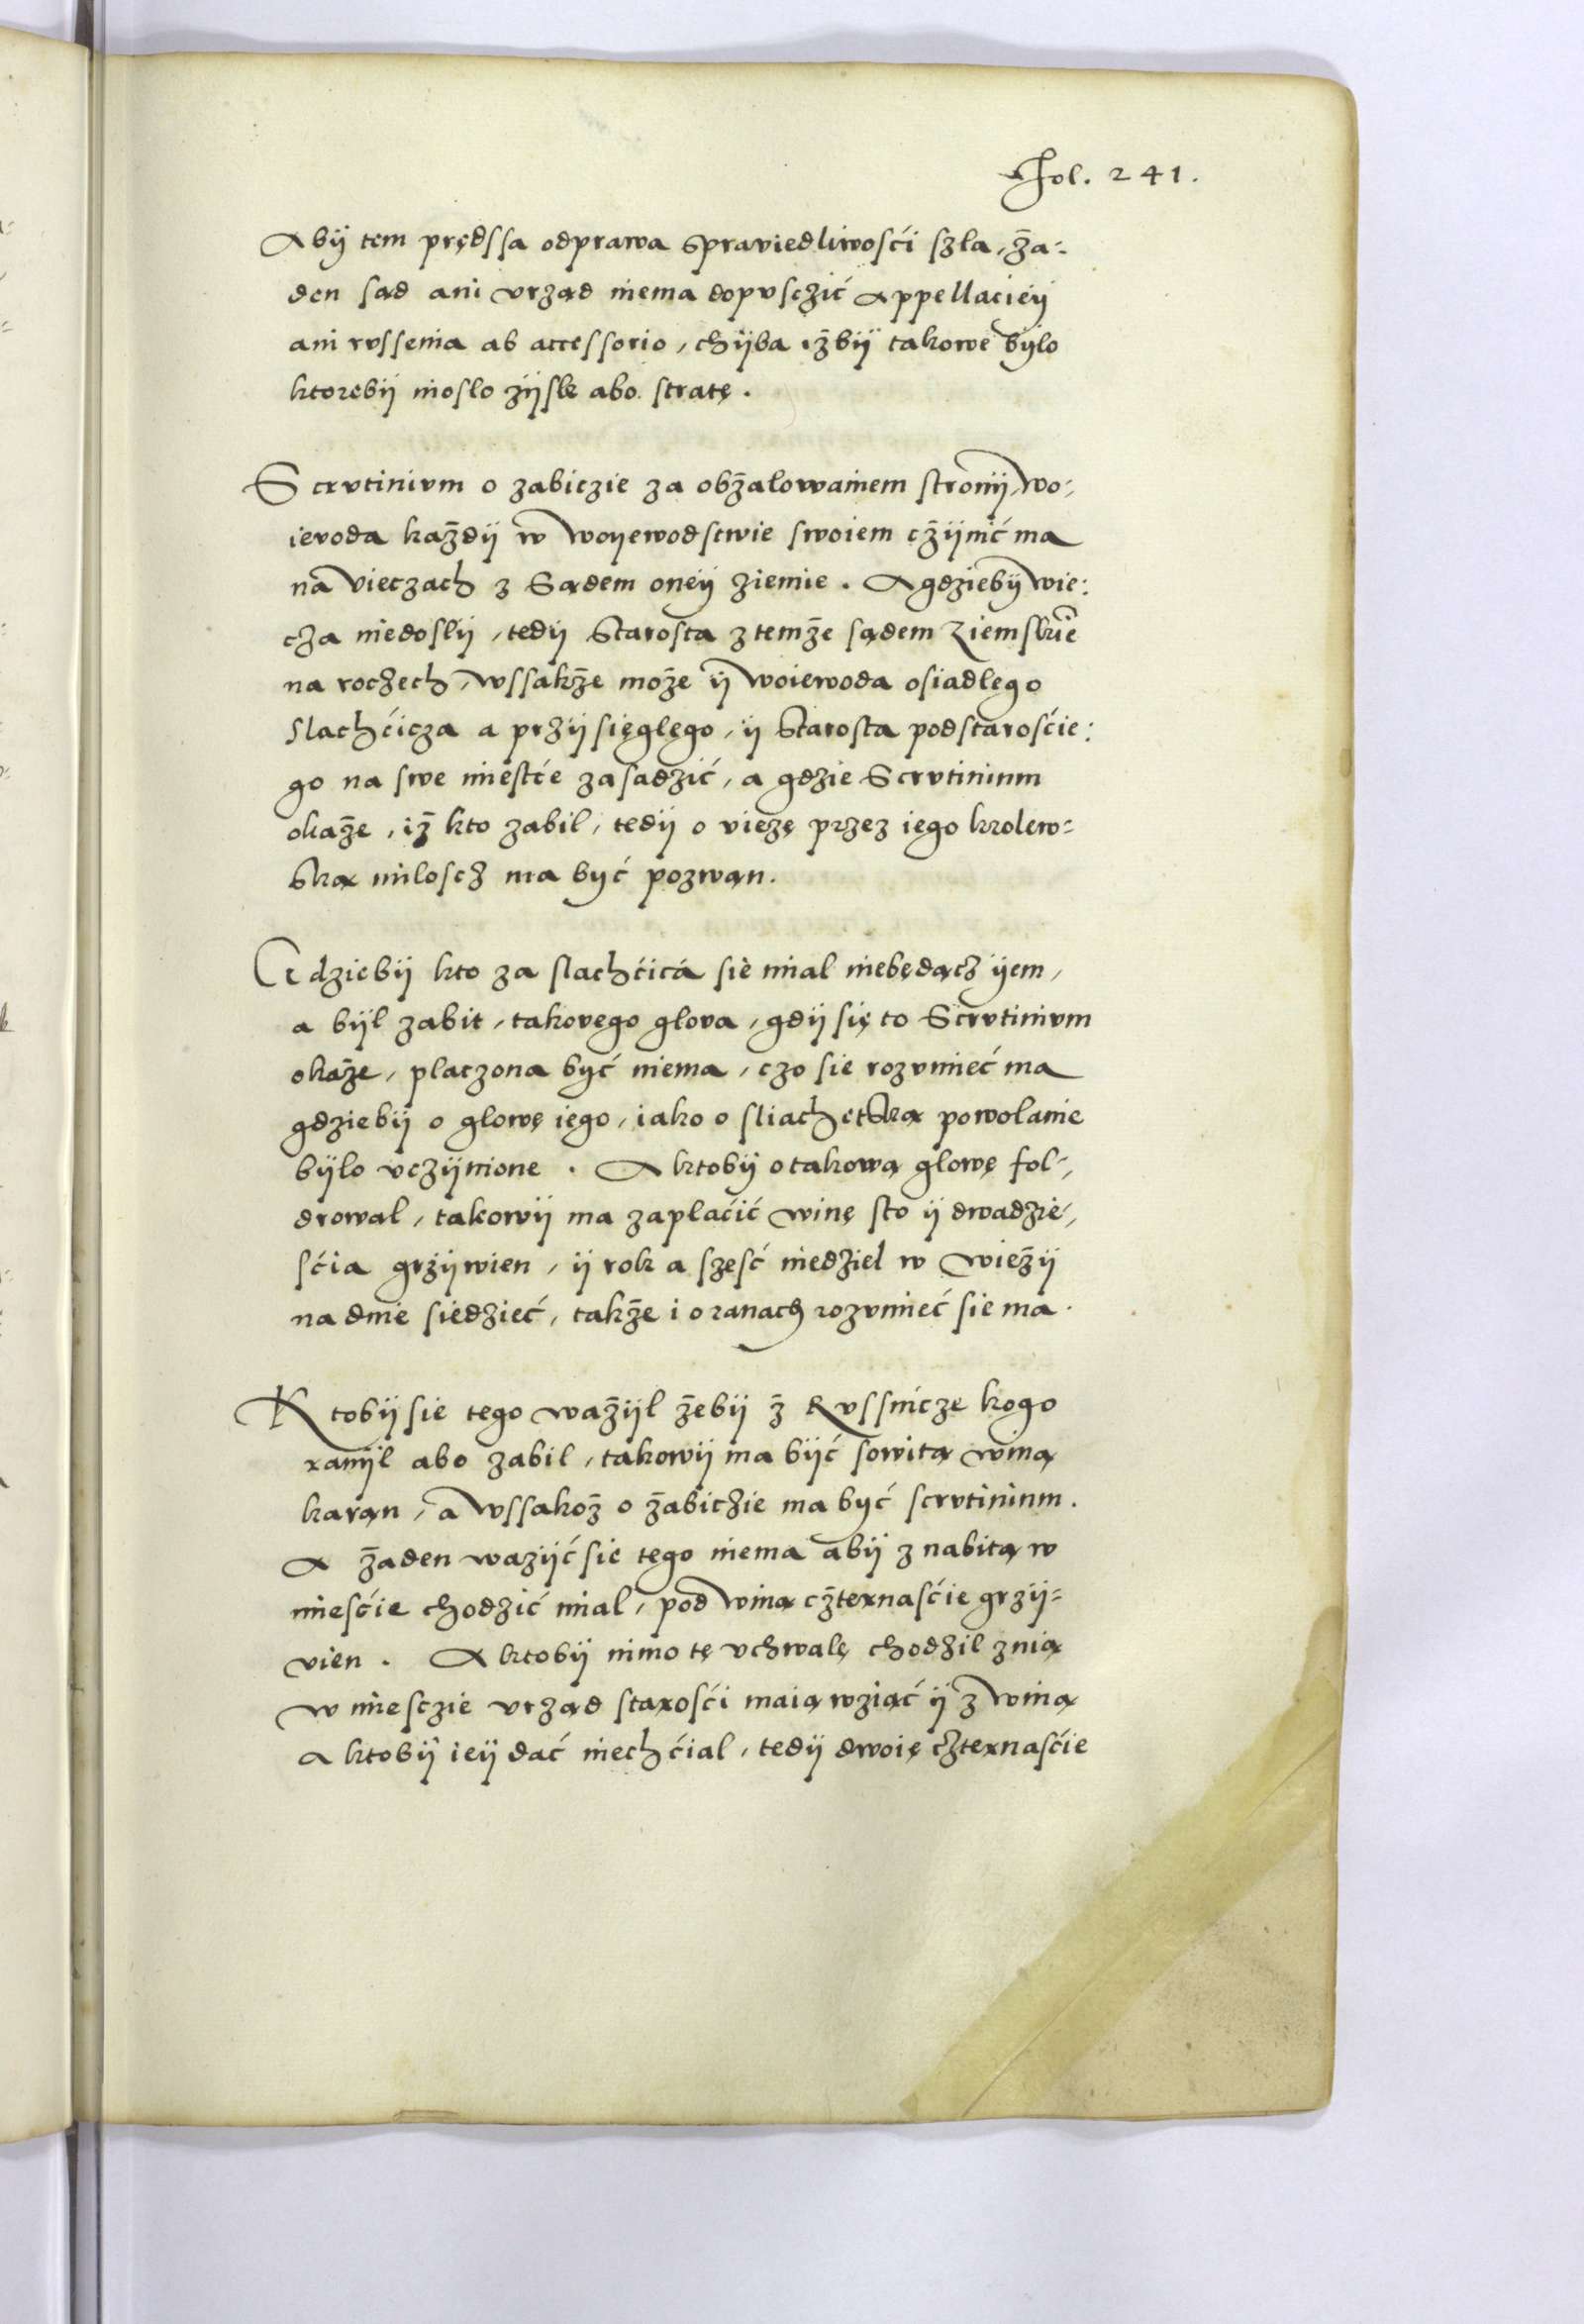 Fol. 241.
Abÿ tem prędssa odprawa spraviedliwosći szla, ża-
den sąd ani vrząd niema dopvsczić appellacieÿ
ani rvssenia ab accessorio, chÿba iżbÿ takowe bÿlo
ktorebÿ nioslo zÿsk abo stratę.
Scrvtinivm o zabiczie za obżalowaniem stronÿ, wo-
ievoda każdÿ w woyewodstwie swoiem czÿnić ma
na vieczach z Sądem oneÿ ziemie. A gdziebÿ wie:
cza niedoslÿ, tedÿ Starosta z temże sądem Ziemskie
na roczech, wssakże może ÿ woiewoda osiadlęgo
slachćicza a przÿsięglęgo, ÿ Starosta podstarosćie:
go na swe miestće zasadzić, a gdzie Scrvtinium
okaże, iż kto zabil, tedÿ o vieżę przez iego krolew-
ską miloscz ma być pozwąn.
Gdziebÿ kto za slachćicá sie mial niebędącz ÿem,
a bÿl zabit, takovego glova, gdÿ się to Scrvtinivm
okaże, placzona być niema, czo sie rozvmieć ma
gdziebÿ o glowę ięgo, iako o sliachetską powolanie
bÿlo vczÿnione. A ktobÿ o takową glowę fol-
drowal, takowÿ ma zaplaćić winę sto ÿ dwadzie-
sćia grzÿwien, ÿ rok a szesć niedziel w wieżÿ
na dnie siedzieć, także i o ranach rozvmieć sie ma.
Ktobÿ sie tego ważÿl żebÿ ż Rvssnicze kogo
ranÿl abo zabil, takowÿ ma bÿć sowitą winą
karąn, a wssakoż o żabiczie ma być scrvtinium.
A żaden wazÿć sie tęgo niema abÿ z nabitą w
miesćie chodzić mial, pod winą czternasćie grzÿ-
vien. A ktobÿ nimo tę vchwalę chodzil z nią
w miesczie vrząd starosći maią wziąć ÿ z winą
a ktobÿ ieÿ dać niechćial, tedÿ dwoię czternasćie